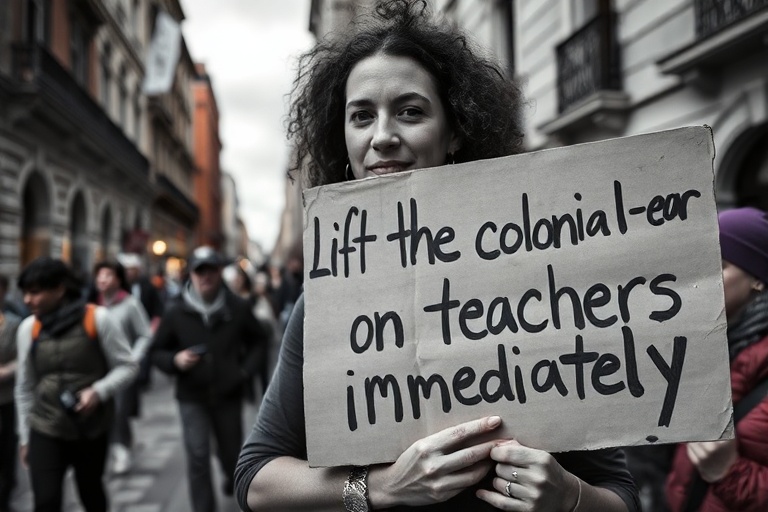 Lift the colonial-ear
on teachers
immediately